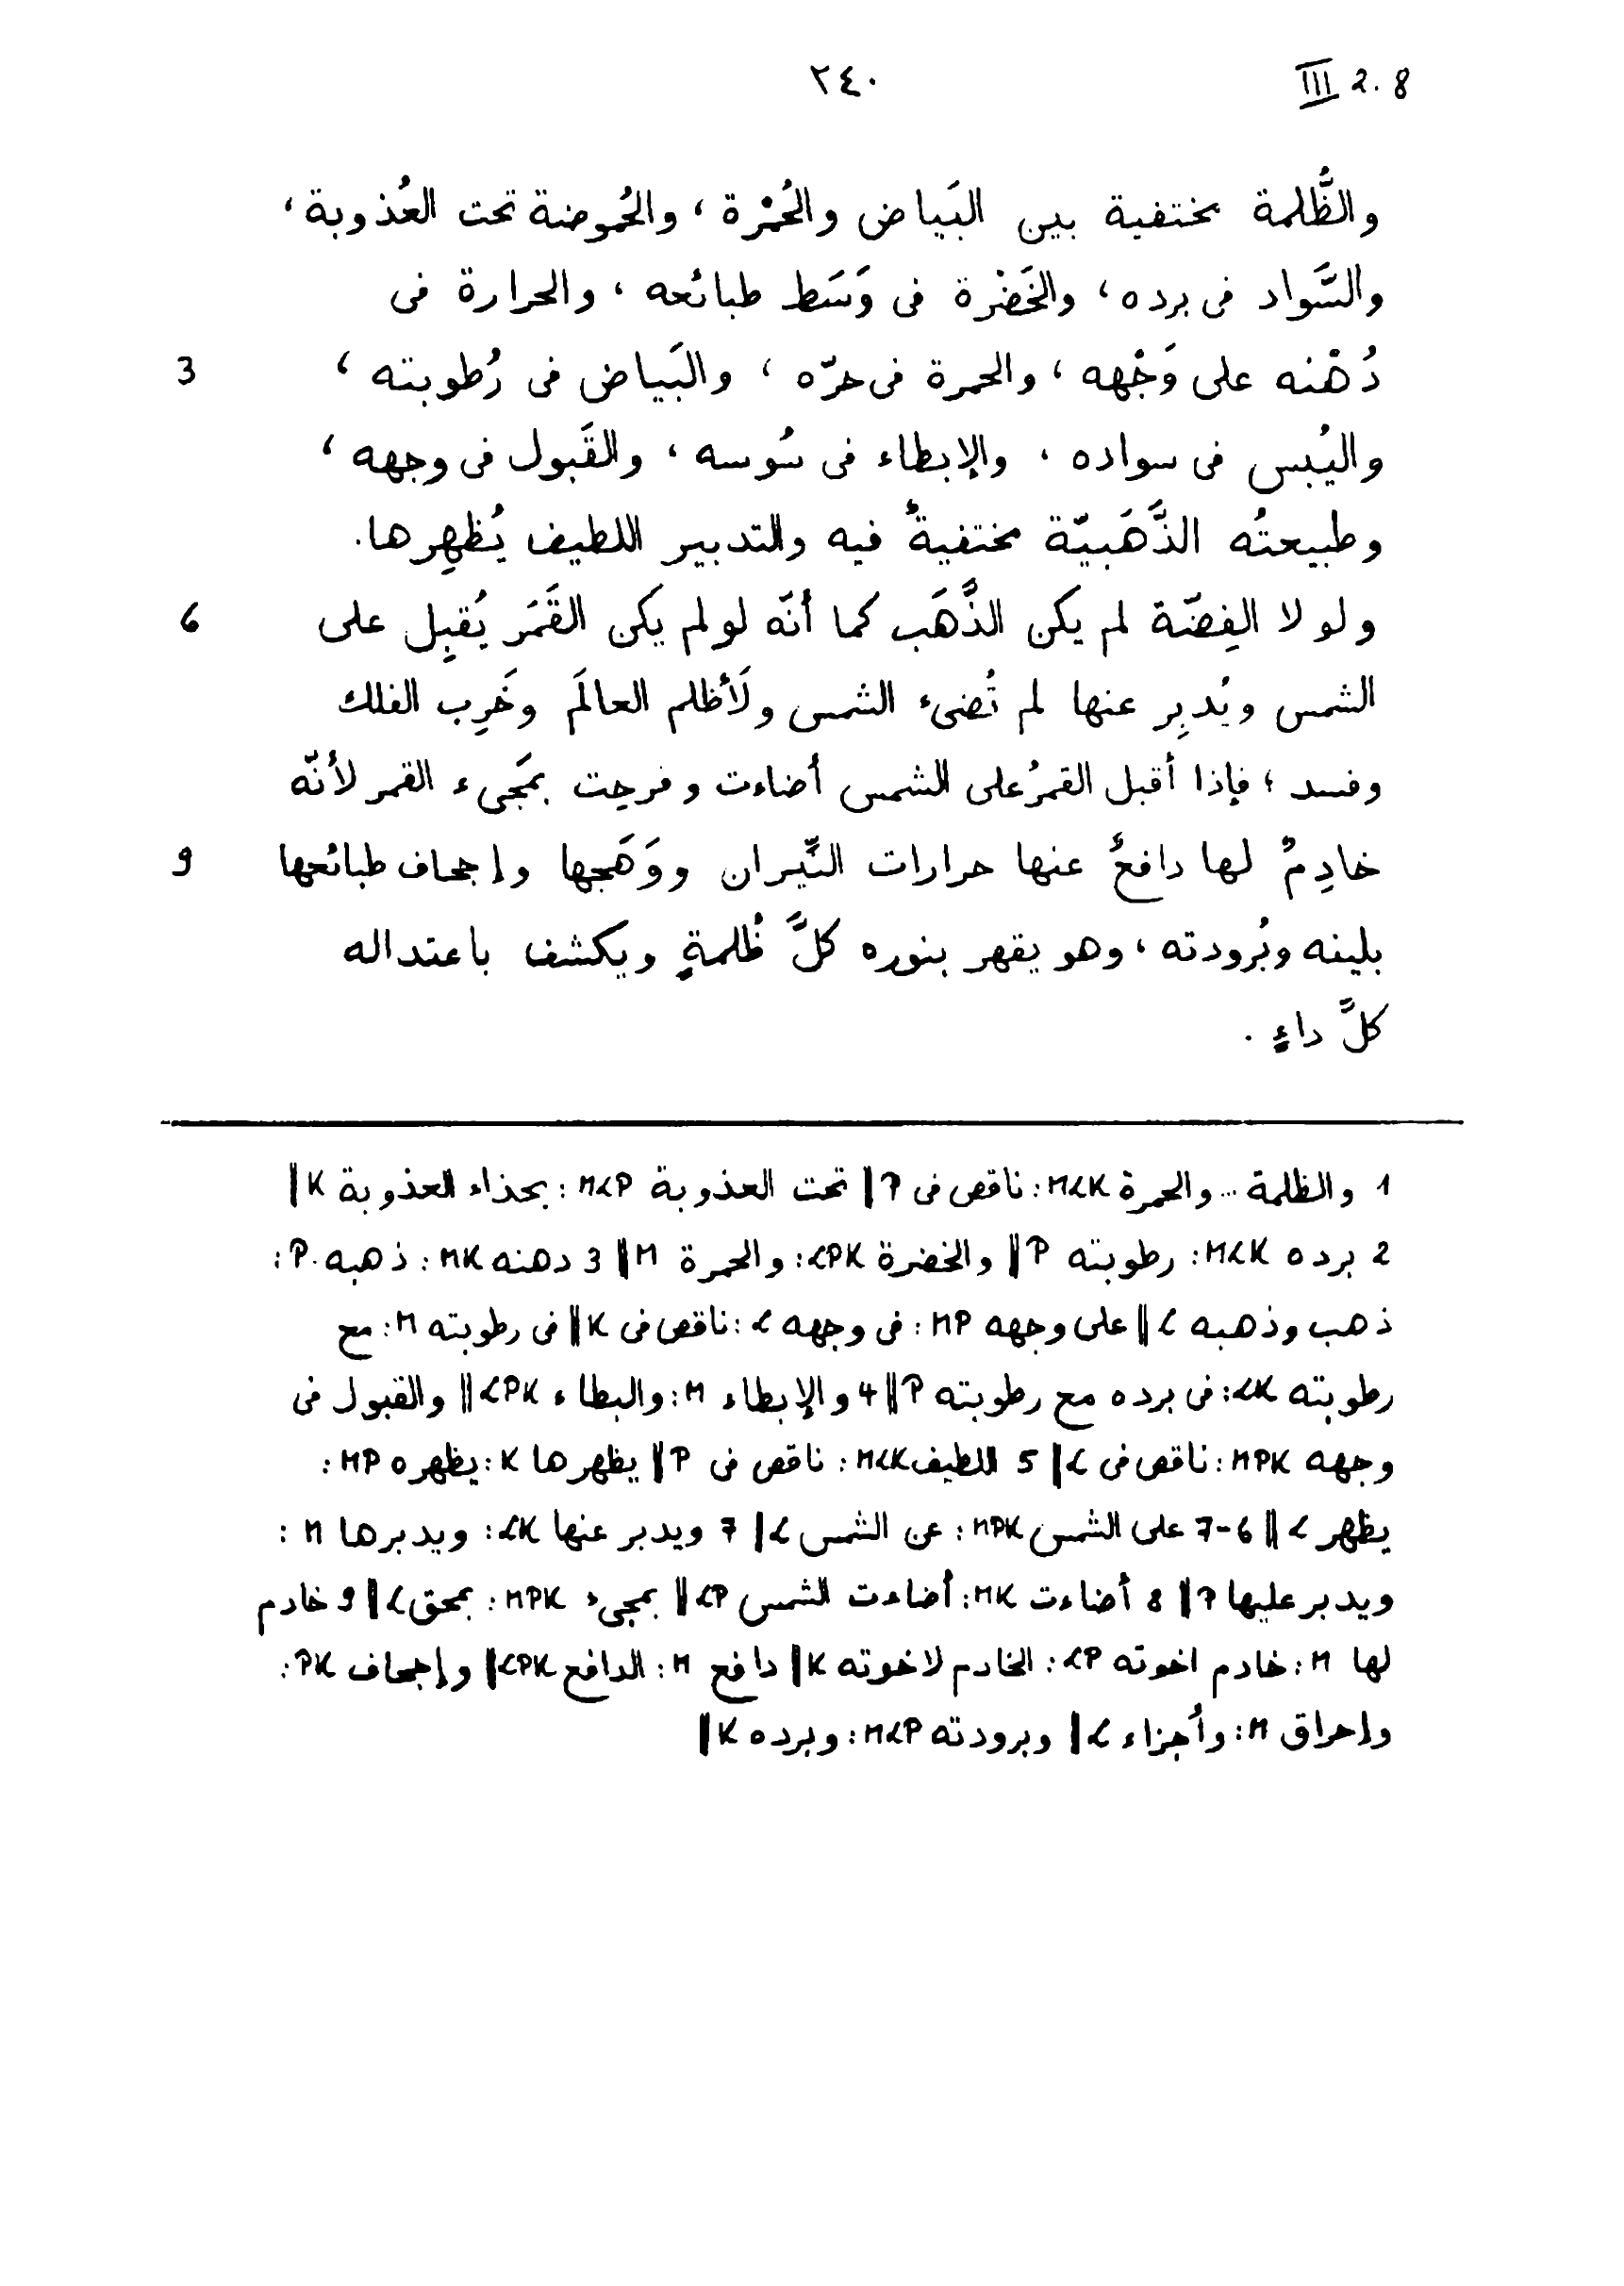 ٢٤٠ III 2.8
والظُّلمة مختفية بين البَياض والحُمْرة ، والحُموضة تحت العُذوبة ،
والسَّواد فى برده ، والخَضْرة فى وَسَط طبائعه ، والحرارة فى
دُهْنه على وَجْهه ، والحمرة فى حرّه ، والبَياض فى رُطوبته ، 3
واليُبس فى سواده ، والإبطاء فى سُوسه ، والقَبول فى وجهه ،
وطبيعتُه الذَّهَبيّة مختفيةٌ فيه والتدبير اللطيف يُظهِرها .
ولو لا الفِضّة لم يكن الذَّهَب كما أنّه لو لم يكن القَمَر يُقبِل على 6
الشمس ويُدبِر عنها لم تُضىء الشمس ولَأظلم العالَم وخَرِب الفلك
وفسد ؛ فإذا أقبل القمرُ على الشمس أضاءت وفرحِت بمَجىء القمر لأنّه
خادِمٌ لها دافعٌ عنها حرارات النِّيران ووَهَجها وإجحاف طبائعها 9
بلينه وبُرودته ، وهو يقهر بنوره كلَّ ظُلمةٍ ويكشف باعتداله
كلَّ داءٍ .
1 والظلمة … والحمرة MLK : ناقص فى P || تحت العذوبة MLP : بحذاء العذوبة K ||
2 برده MLK : رطوبته P || والخضرة LPK : والحمرة M || 3 دهنه MK : ذهبه P :
ذهب وذهبه L || على وجهه MP : فى وجهه L : ناقص فى K || فى رطوبته M : مع
رطوبته LK : فى برده مع رطوبته P || 4 والإبطاء M : والبطاء LPK || والقبول فى
وجهه MPK : ناقص فى L || 5 اللطيف MLK : ناقص فى P || يظهرها K : يظهره MP :
يظهر L || 6-7 على الشمس MPK : عن الشمس L || 7 ويدبر عنها LK : ويدبرها M :
ويدبر عليها P || 8 أضاءت MK : أضاءت الشمس LP || بمجىء MPK : بمحق L || 9 خادم
لها M : خادم اخوته LP : الخادم لاخوته K || دافع M : الدافع LPK || وإجحاف PK :
وإحراق M : وأجزاء L || وبرودته MLP : وبرده K ||